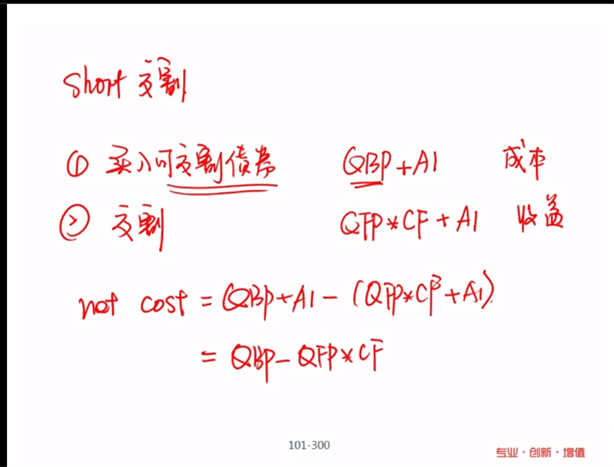 Short 交割
① 买入可交割债券 QBP+AI 成本
② 交割 QFP*CF+AI 收益
net cost = QBP+AI-(QFP*CF+AI)
= QBP-QFP*CF
101-300
专业·创新·增值